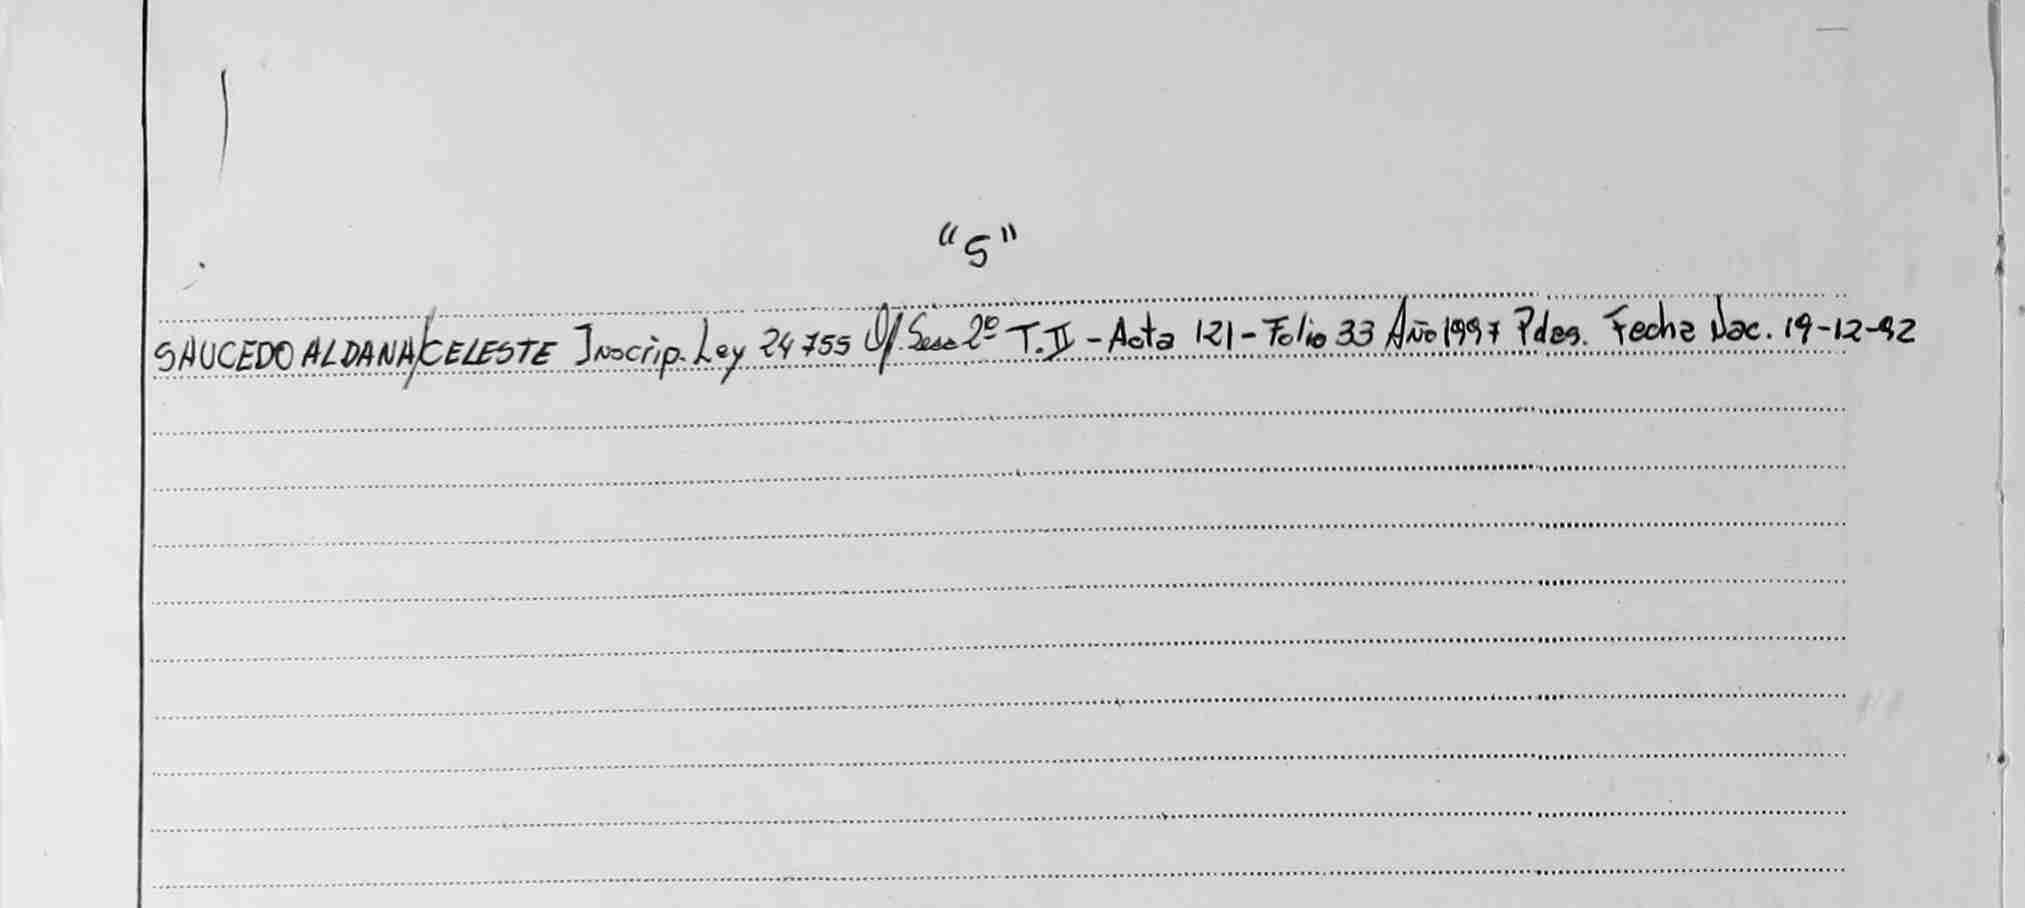 "S"
SAUCEDO ALDANA CELESTE Inscrip. Ley 24755 Of. Secc 2º T.II - Acta 121 - Folio 33 Año 1997 Pdas. Fecha Nac. 19-12-92